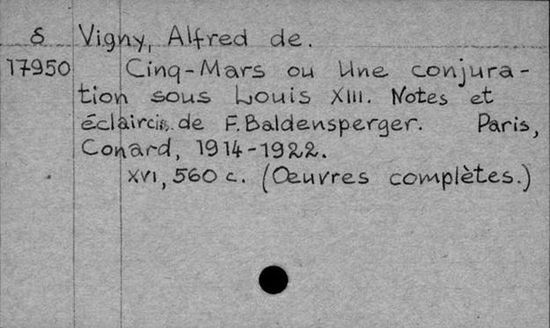 8 Vigny, Alfred de.
17950 Cinq-Mars ou Une conjura-
tion sous Louis XIII. Notes et
éclaircis. de F. Baldensperger. Paris,
Conard, 1914-1922.
XVI, 560 c. (Œuvres complètes.)